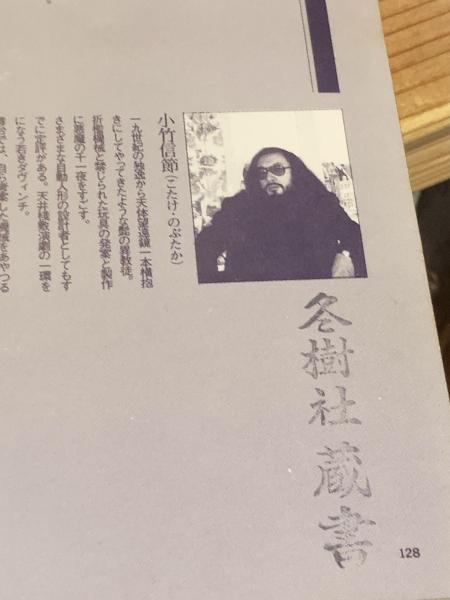 小竹信節(こたけ・のぶたか)
一九世紀の独逸から天体望遠鏡一本横抱
きにしてやってきたような髭の異教徒。
折檻機械と禁じられた玩具の発案と製作
に悪魔の千一夜をすごす。
さまざまな自動人形の設計者としてもす
でに定評がある。天井棧敷演劇の一環を
になう若きダヴィンチ。
冬樹社蔵書
128